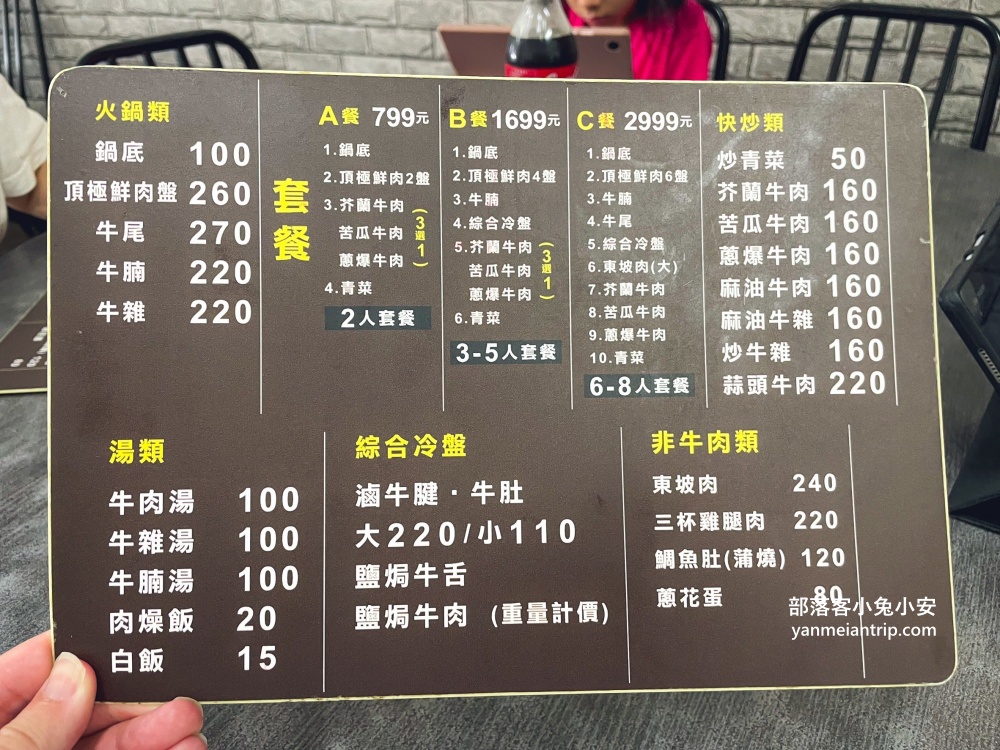 火鍋類
鍋底 100
頂極鮮肉盤 260
牛尾 270
牛腩 220
牛雜 220
套餐
A餐 799元
1.鍋底
2.頂極鮮肉2盤
3.芥蘭牛肉
苦瓜牛肉
蔥爆牛肉
(3選1)
4.青菜
2人套餐
B餐1699元
1.鍋底
2.頂極鮮肉4盤
3.牛腩
4.綜合冷盤
5.芥蘭牛肉
苦瓜牛肉
蔥爆牛肉
(3選1)
6.青菜
3-5人套餐
C餐 2999元
1.鍋底
2.頂極鮮肉6盤
3.牛腩
4.牛尾
5.綜合冷盤
6.東坡肉(大)
7.芥蘭牛肉
8.苦瓜牛肉
9.蔥爆牛肉
10.青菜
6-8人套餐
快炒類
炒青菜 50
芥蘭牛肉 160
苦瓜牛肉 160
蔥爆牛肉 160
麻油牛肉 160
麻油牛雜 160
炒牛雜 160
蒜頭牛肉 220
湯類
牛肉湯 100
牛雜湯 100
牛腩湯 100
肉燥飯 20
白飯 15
綜合冷盤
滷牛腱·牛肚
大220/小110
鹽焗牛舌
鹽焗牛肉 (重量計價)
非牛肉類
東坡肉 240
三杯雞腿肉 220
鯛魚肚(蒲燒) 120
蔥花蛋 80
部落客小兔小安
yanmeiantrip.com